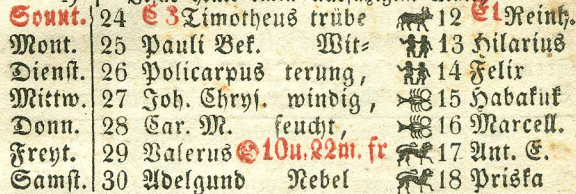 Sonnt. 24 C3 Timotheus trübe 12 C1 Reinh.
Mont. 25 Pauli Bek. Wit= 13 Hilarius
Dienſt. 26 Policarpus terung, 14 Felix
Mittw. 27 Joh. Chryſ. windig, 15 Habakuk
Donn. 28 Car. M. feucht, 16 Marcell.
Freyt. 29 Valerus 10u. 22m. fr 17 Ant. E.
Samſt. 30 Adelgund Nebel 18 Priska